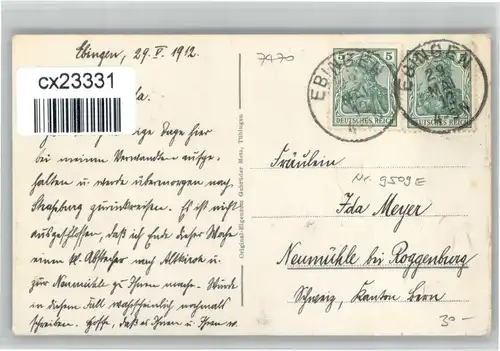 Ebingen, 29. V. 1912.
7470
cx23331
EBINGEN
29 MAI
5 5
DEUTSCHES REICH
EBINGEN
29 MAI
DEUTSCHES REICH
ige Tage hier
bei meinen Verwandten aufge-
halten u. werde übermorgen nach
Strassburg zurückreisen. Es ist nicht
ausgeschlossen, daß ich Ende dieser Woche
einen kl. Abstecher nach Altkirch u.
zur Neumühle zu Ihnen mache. Würde
in diesem Fall wahrscheinlich nochmals
schreiben. Hoffe, daß es Ihnen u. Ihren w.
Original-Eigentum Gebrüder Metz, Tübingen
Fräulein
Nr. 9509E
Ida Meyer
Neumühle bei Roggenburg
Schweiz, Kanton Bern
30-